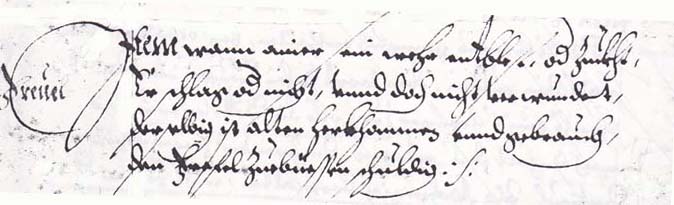 Frevel
Item wann ainer sein wehr entblest, od Zuckht,
Er schlag od nicht, vnnd doch nicht verwundet,
derselbig ist alten herkhommen vnnd gebrauch,
den Freffel Zuebüessen schuldig.